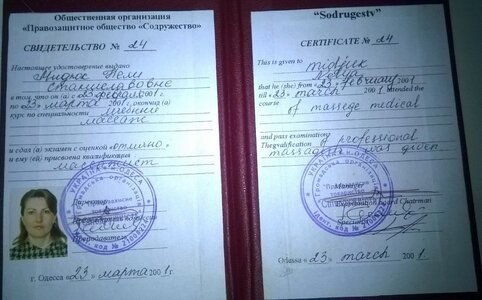 Общественная организация
«Правозащитное общество «Содружество»
СВИДЕТЕЛЬСТВО № 24
Настоящее удостоверение выдано
Станиславовне
в том, что он (а) с «23»
по «23» марта 2001 г. окончил (а)
курс по специальности лечебный
массаж
и сдал (а) экзамен с оценкой «отлично»
и ему (ей) присвоена квалификация
массажист
Директор
Преподаватель
г. Одесса «23» марта 2001 г.
"Sodrugestv"
CERTIFICATE № 24
This is given to
that he (she) from «23» february 2001
till «23» march 2001 intended the
course of massege medical
and pass examination
Thegvalification of professional
massage was given
Manager
Examination board Chairman
Odassa «23» march 2001